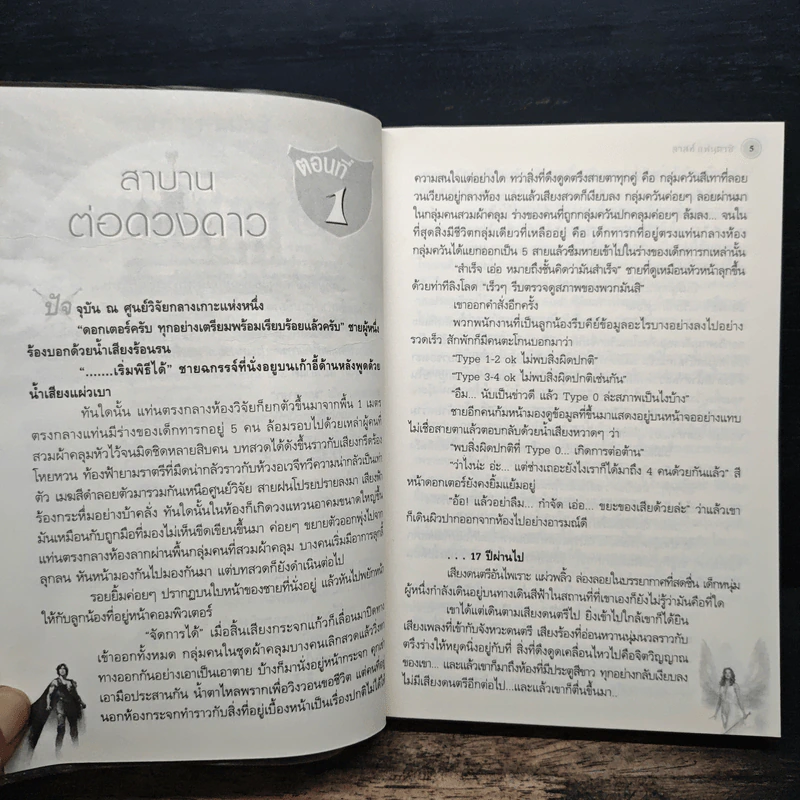 ตอนที่
1
สาบาน
ต่อดวงดาว
ปัจจุบัน ณ ศูนย์วิจัยกลางเกาะแห่งหนึ่ง
"ดอกเตอร์ครับ ทุกอย่างเตรียมพร้อมเรียบร้อยแล้วครับ" ชายผู้หนึ่ง
ร้องบอกด้วยน้ำเสียงร้อนรน
".......เริ่มพิธีได้" ชายฉกรรจ์ที่นั่งอยู่บนเก้าอี้ด้านหลังพูดด้วย
น้ำเสียงแผ่วเบา
ทันใดนั้น แท่นตรงกลางห้องวิจัยก็ยกตัวขึ้นมาจากพื้น 1 เมตร
ตรงกลางแท่นมีร่างของเด็กทารกอยู่ 5 คน ล้อมรอบไปด้วยเหล่าผู้คนที่
สวมผ้าคลุมหัวไว้จนมิดชิดหลายสิบคน บทสวดได้ดังขึ้นราวกับเสียงกรีดร้อง
โหยหวน ท้องฟ้ายามราตรีที่มืดน่ากลัวราวกับห้วงอเวจีทวีความน่ากลัวเป็นเท่า
ตัว เมฆสีดำลอยตัวมารวมกันเหนือศูนย์วิจัย สายฝนโปรยปรายลงมา เสียงฟ้า
ร้องกระหึ่มอย่างบ้าคลั่ง ทันใดนั้นในห้องก็เกิดวงแหวนอาคมขนาดใหญ่ขึ้น
มันเหมือนกับถูกมือที่มองไม่เห็นขีดเขียนขึ้นมา ค่อยๆ ขยายตัวออกพุ่งไปจาก
แท่นตรงกลางห้องลากผ่านพื้นกลุ่มคนที่สวมผ้าคลุม บางคนเริ่มมีอาการลุกลี้
ลุกลน หันหน้ามองกันไปมองกันมา แต่บทสวดก็ยังดำเนินต่อไป
รอยยิ้มค่อยๆ ปรากฏบนใบหน้าของชายที่นั่งอยู่ แล้วหันไปพยักหน้า
ให้กับลูกน้องที่อยู่หน้าคอมพิวเตอร์
"จัดการได้" เมื่อสิ้นเสียงกระจกแก้วก็เลื่อนมาปิดทาง
เข้าออกทั้งหมด กลุ่มคนในชุดผ้าคลุมบางคนเลิกสวดแล้ววิ่งหา
ทางออกกันอย่างเอาเป็นเอาตาย บ้างก็มานั่งอยู่หน้ากระจก คุกเข่า
เอามือประสานกัน น้ำตาไหลพรากเพื่อวิงวอนขอชีวิต แต่คนที่อยู่
นอกห้องกระจกทำราวกับสิ่งที่อยู่เบื้องหน้าเป็นเรื่องปกติไม่ได้ให้
5
ความสนใจแต่อย่างใด ทว่าสิ่งที่ดึงดูดตรึงสายตาทุกคู่ คือ กลุ่มควันสีเทาที่ลอย
วนเวียนอยู่กลางห้อง และแล้วเสียงสวดก็เงียบลง กลุ่มควันค่อยๆ ลอยผ่านมา
ในกลุ่มคนสวมผ้าคลุม ร่างของคนที่ถูกกลุ่มควันปกคลุมค่อยๆ ล้มลง... จนใน
ที่สุดสิ่งมีชีวิตกลุ่มเดียวที่เหลืออยู่ คือ เด็กทารกที่อยู่ตรงแท่นกลางห้อง
กลุ่มควันได้แยกออกเป็น 5 สายแล้วซึมหายเข้าไปในร่างของเด็กทารกเหล่านั้น
"สำเร็จ เอ่อ หมายถึงชั้นคิดว่ามันสำเร็จ" ชายที่ดูเหมือนหัวหน้าลุกขึ้น
ด้วยท่าทีลิงโลด "เร็วๆ รีบตรวจดูสภาพของพวกมันสิ"
เขาออกคำสั่งอีกครั้ง
พวกพนักงานที่เป็นลูกน้องรีบคีย์ข้อมูลอะไรบางอย่างลงไปอย่าง
รวดเร็ว สักพักก็มีคนตะโกนบอกมาว่า
"Type 1-2 ok ไม่พบสิ่งผิดปกติ"
"Type 3-4 ok ไม่พบสิ่งผิดปกติเช่นกัน"
"อืม... นับเป็นข่าวดี แล้ว Type 0 ล่ะสภาพเป็นไงบ้าง"
ชายอีกคนก้มหน้ามองดูข้อมูลที่ขึ้นมาแสดงอยู่บนหน้าจออย่างแทบ
ไม่เชื่อสายตาแล้วตอบกลับด้วยน้ำเสียงหวาดๆ ว่า
"พบสิ่งผิดปกติที่ Type 0... เกิดการต่อต้าน"
"ว่าไงน่ะ อ่ะ... แต่ช่างเถอะยังไงเราก็ได้มาถึง 4 คนด้วยกันแล้ว" สี
หน้าดอกเตอร์ยังคงยิ้มแย้มอยู่
"อ้อ! แล้วอย่าลืม... กำจัด เอ่อ... ขยะของเสียด้วยล่ะ" ว่าแล้วเขา
ก็เดินผิวปากออกจากห้องไปอย่างอารมณ์ดี
. . . 17 ปีผ่านไป
เสียงดนตรีอันไพเราะ แผ่วพลิ้ว ล่องลอยในบรรยากาศที่สดชื่น เด็กหนุ่ม
ผู้หนึ่งกำลังเดินอยู่บนทางเดินสีฟ้าในสถานที่ที่เขาเองก็ยังไม่รู้ว่ามันคือที่ใด
เขาได้แต่เดินตามเสียงดนตรีไป ยิ่งเข้าไปใกล้เขาก็ได้ยิน
เสียงเพลงที่เข้ากับจังหวะดนตรี เสียงร้องที่อ่อนหวานนุ่มนวลราวกับ
ตรึงร่างให้หยุดนิ่งอยู่กับที่ สิ่งที่ดึงดูดเคลื่อนไหวไปคือจิตวิญญาณ
ของเขา... และแล้วเขาก็มาถึงห้องที่มีประตูสีขาว ทุกอย่างกลับเงียบลง
ไม่มีเสียงดนตรีอีกต่อไป...และแล้วเขาก็ตื่นขึ้นมา...